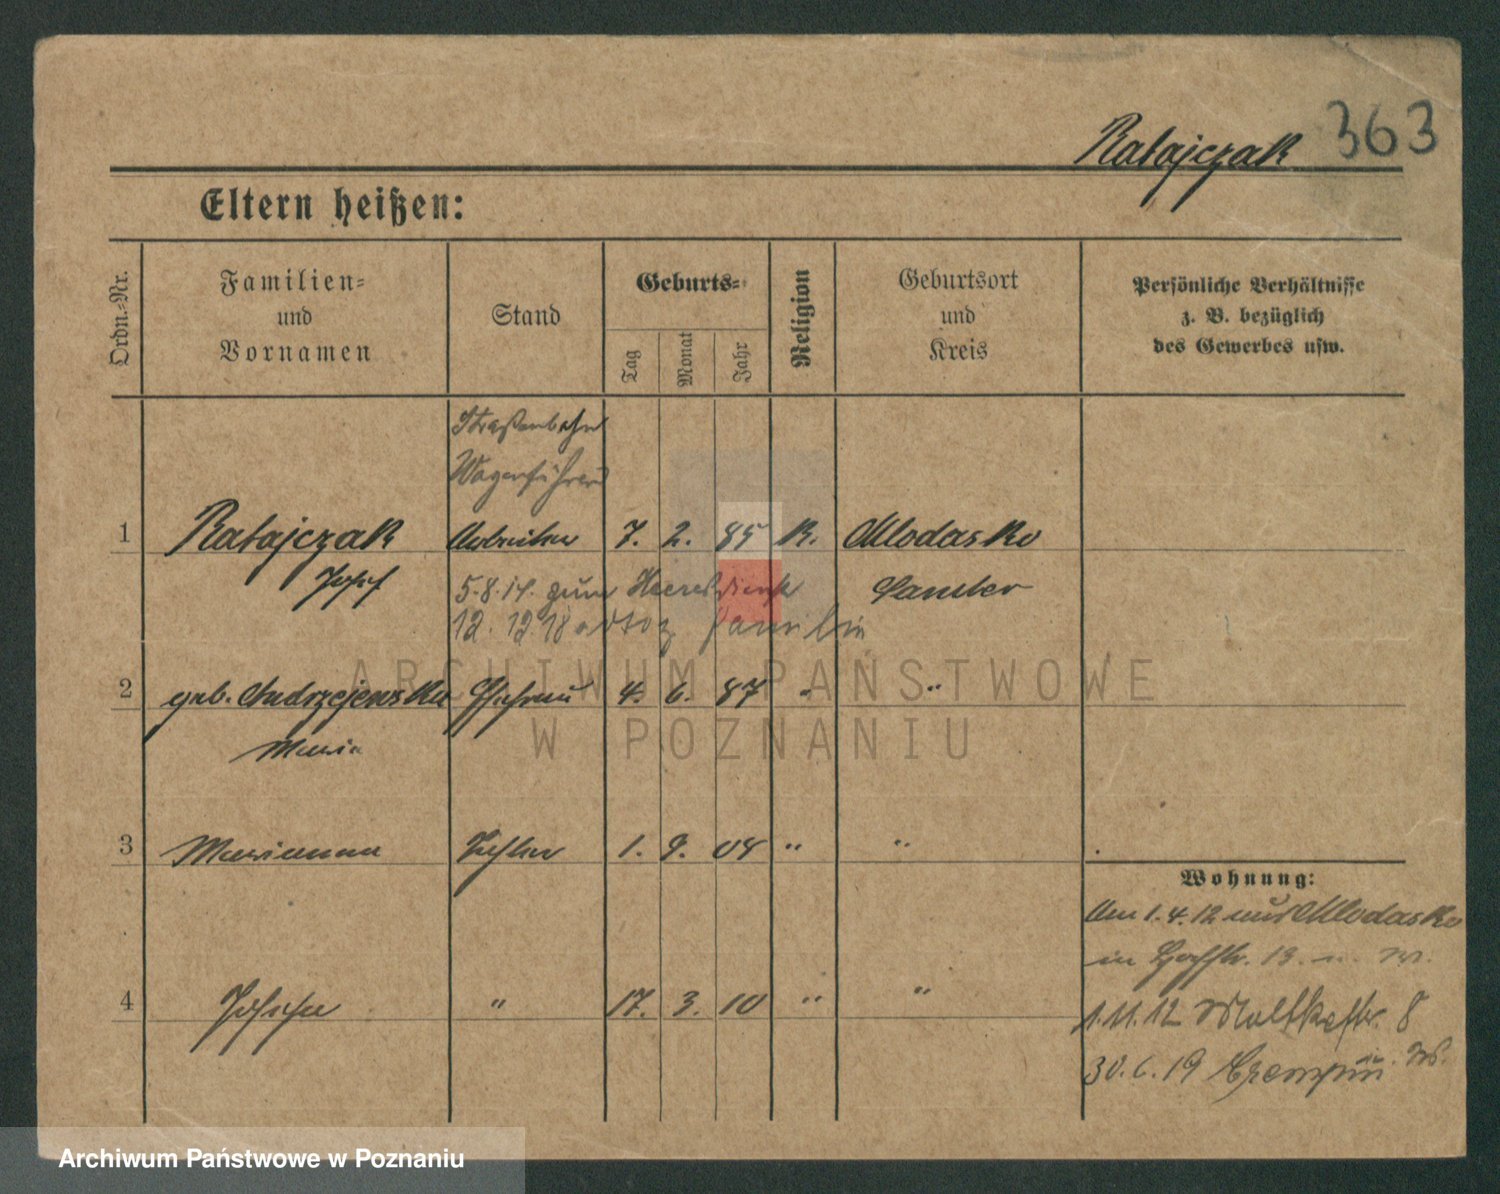 Ratajczak 363
Eltern heißen:
Ordn.-Nr.
Familien- und Vornamen
Stand
Geburts-
Tag
Monat
Jahr
Religion
Geburtsort und Kreis
Persönliche Verhältnisse z. B. bezüglich des Gewerbes usw.
Straßenbahn
Wagenführer
1 Ratajczak Arbeiter 7. 2. 85 K. Mlodasko
Josef 5.8.14. zum Heeresdienst Samter
12. 12 18 Familie
2 geb. Andrzejewska Ehefrau 4. 6. 87 " "
Maria
3 Marianna Tochter 1. 9. 08 " "
Wohnung:
Am 1.4.12 aus Mlodasko
in 13.
4 " 17. 3. 10 " "
1.11.12 Moltkestr. 8
30.6.19
ARCHIWUM PAŃSTWOWE
W POZNANIU
Archiwum Państwowe w Poznaniu